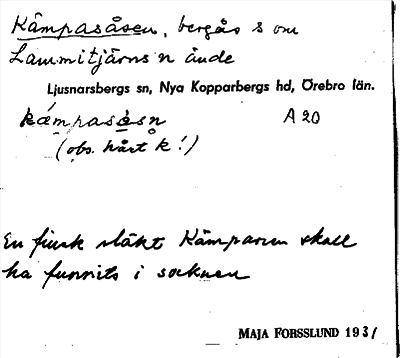 Kämpasåsen, bergås s om
Lammitjärns n ände
Ljusnarsbergs sn, Nya Kopparbergs hd, Örebro län.
kámpasåsn A 20
(obs. hårt k!)
En finsk släkt Kämparen skall
ha funnits i socknen
MAJA FORSSLUND 1931